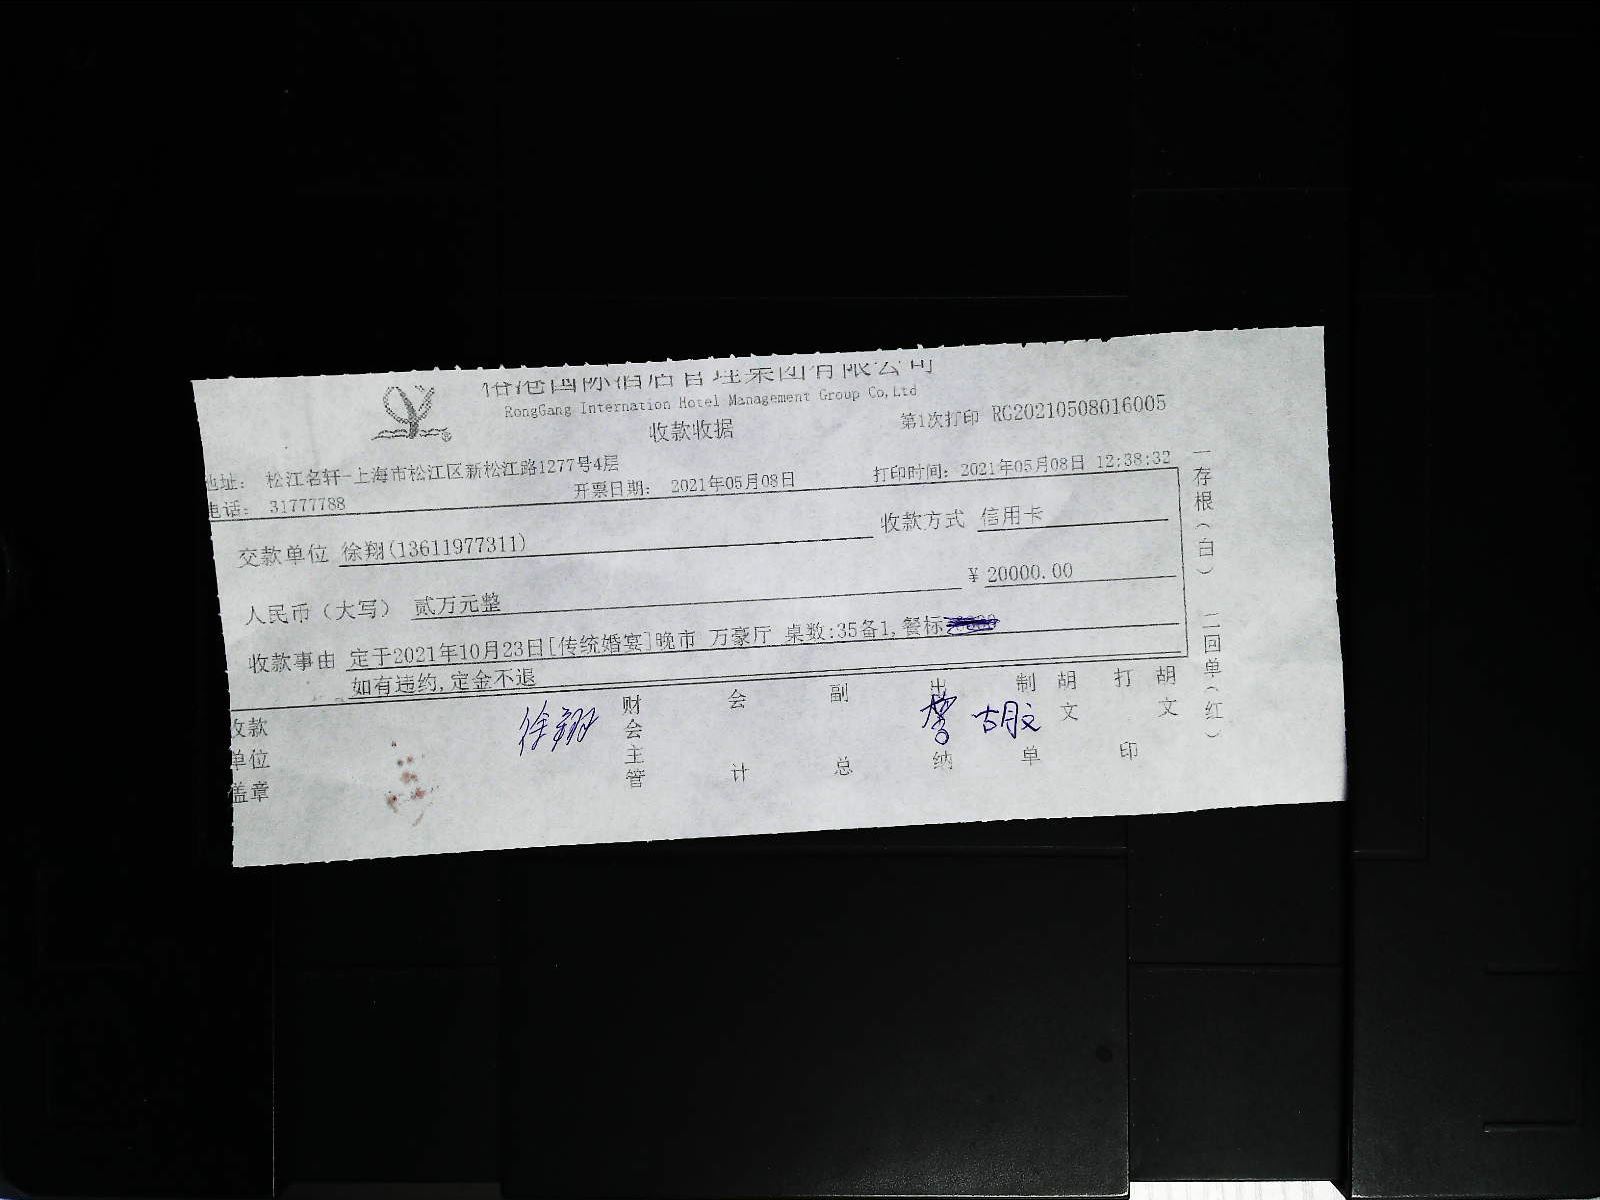 国际酒店管理集团有限公司
RongGang Internation Hotel Management Group Co,Ltd
收款收据
第1次打印 RG20210508016005
地址: 松江名轩-上海市松江区新松江路1277号4层
电话: 31777788
开票日期: 2021年05月08日
打印时间: 2021年05月08日 12:38:32
交款单位 徐翔(13611977311)
收款方式 信用卡
人民币（大写） 贰万元整
¥ 20000.00
收款事由 定于2021年10月23日[传统婚宴]晚市 万豪厅 桌数:35备1,餐标
如有违约,定金不退
收款单位盖章
徐翔
财会主管
会计
副总
出纳
胡文
制单
胡文
打印
胡文
一存根(白)
二回单(红)